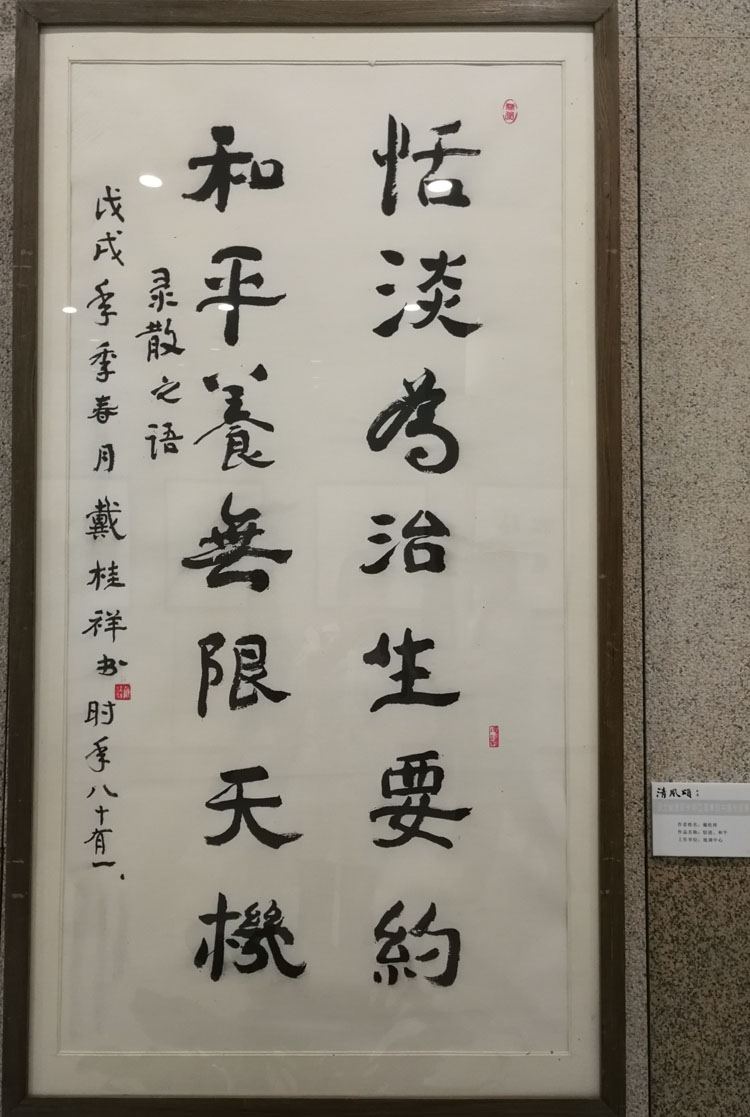 恬淡為治生要約
和平養無限天機
录散之语
戊戌季季春月戴桂祥书时季八十有一
清风颂：
作者姓名：戴桂祥
作品名称：恬淡、和平